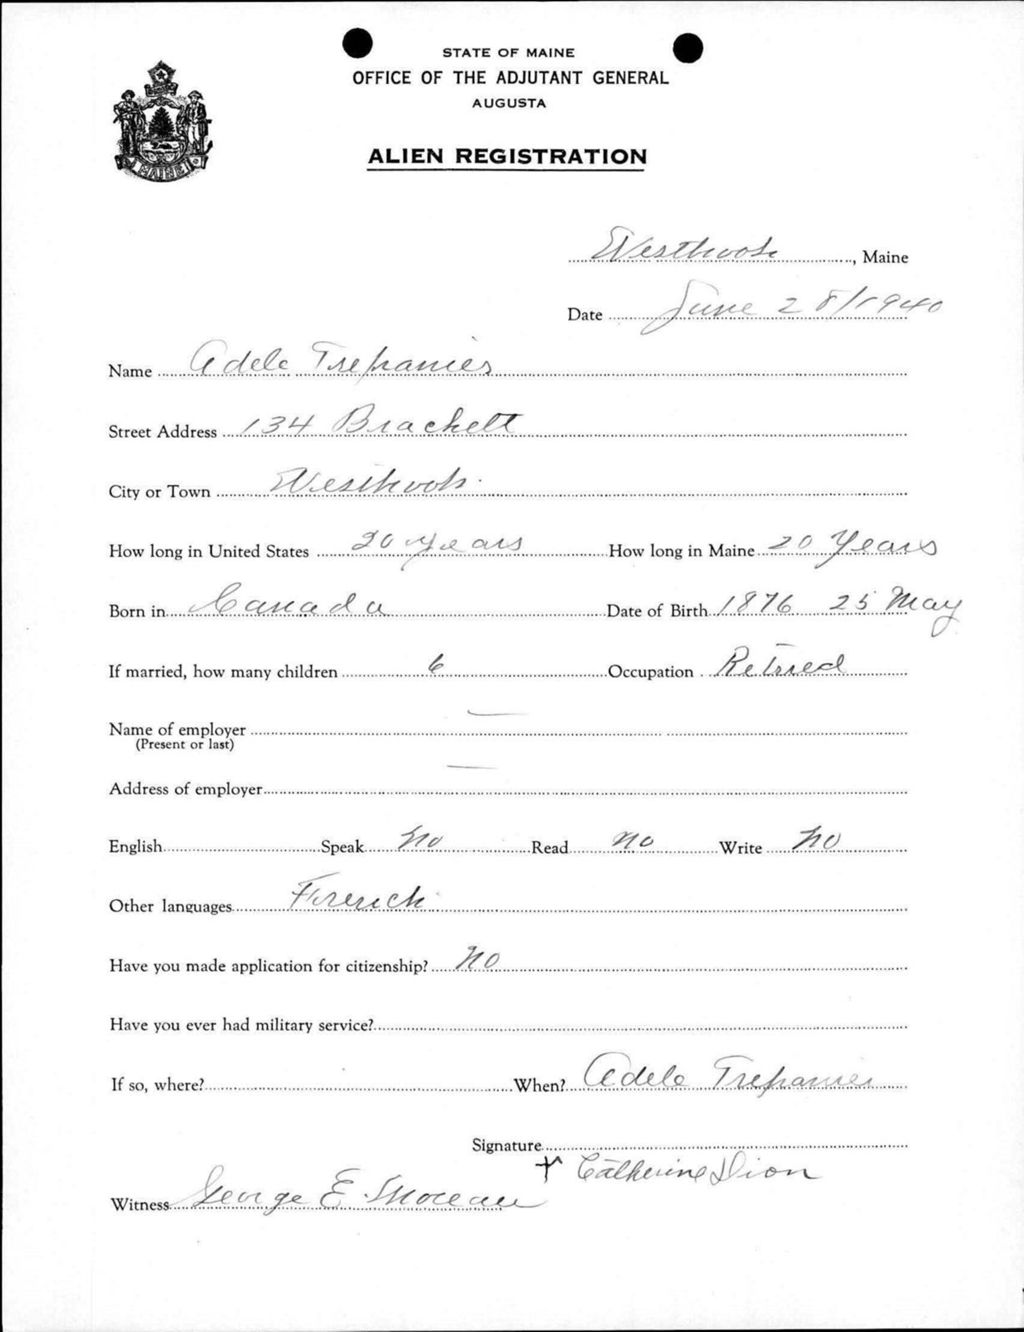 STATE OF MAINE
OFFICE OF THE ADJUTANT GENERAL
AUGUSTA
ALIEN REGISTRATION
Westbrook, Maine
Date June 28/1940
Name Adele Trepanier
Street Address 134 Brackett
City or Town Westbrook.
How long in United States 20 years How long in Maine 20 Years
Born in Canada Date of Birth 1876 25 May
If married, how many children 6 Occupation Retired
Name of employer —
(Present or last)
Address of employer —
English Speak No Read No Write No
Other languages French
Have you made application for citizenship? No
Have you ever had military service?
If so, where? When? Adele Trepanier
Signature
+ Catherine Dion
Witness George E. Moreau
MAINE